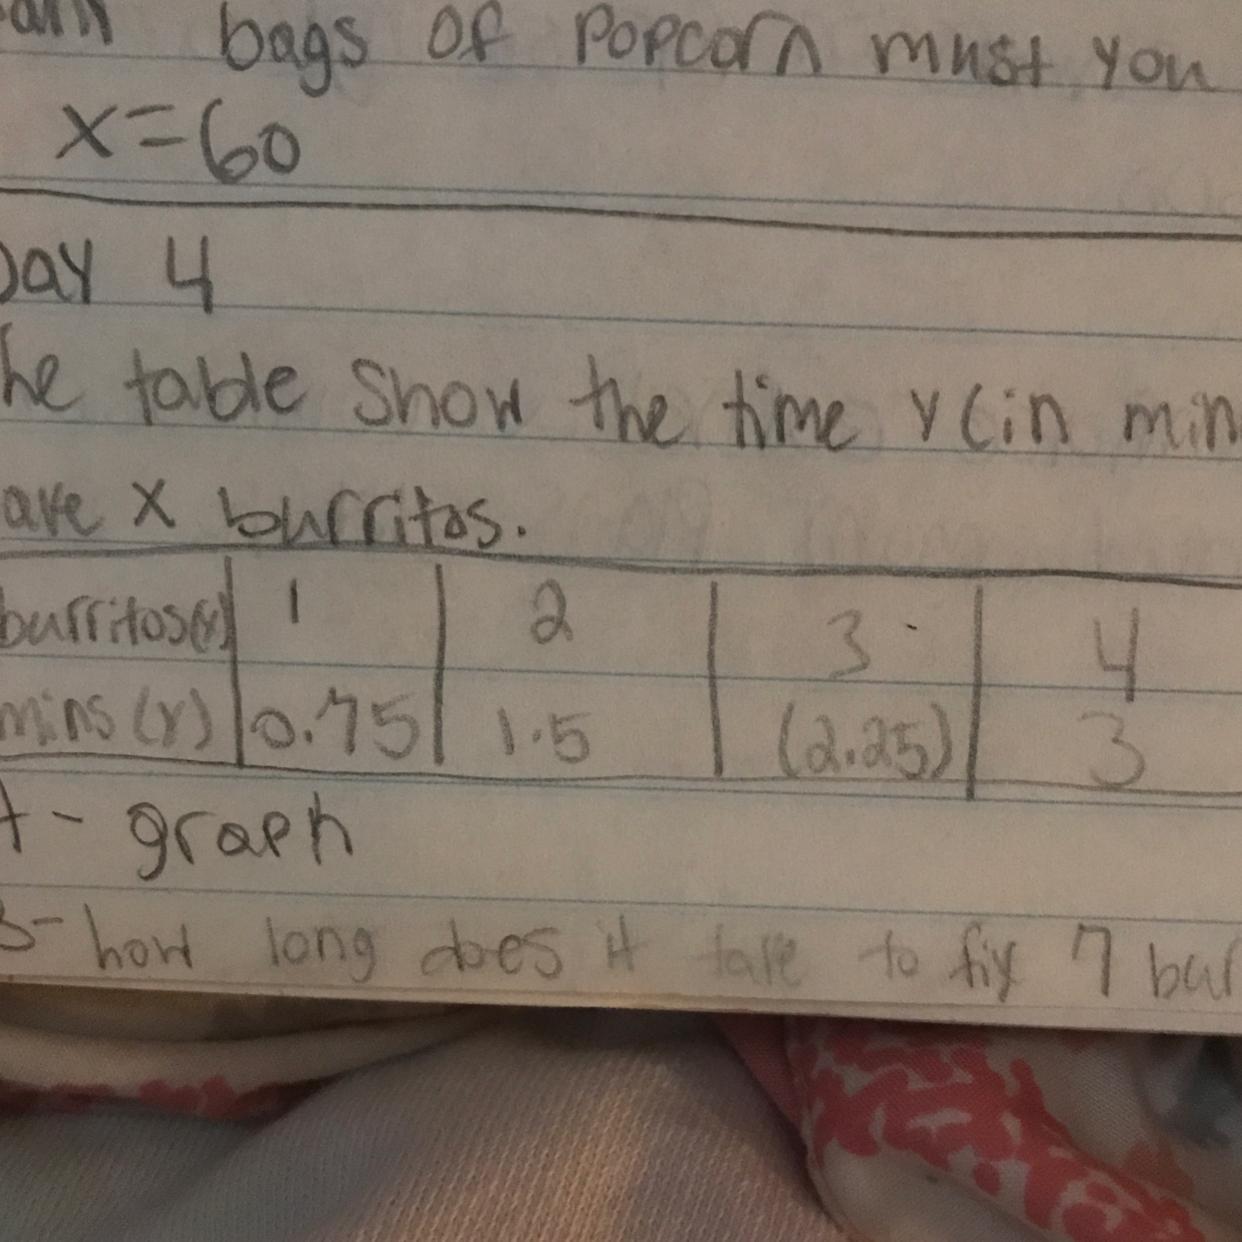 bags of popcorn must you
x=60
Day 4
he table show the time y(in min
ave x burritos.
burritos(x) 1 2 3 4
mins (y) 0.75 1.5 (2.25) 3
A- graph
B- how long does it take to fix 7 bur